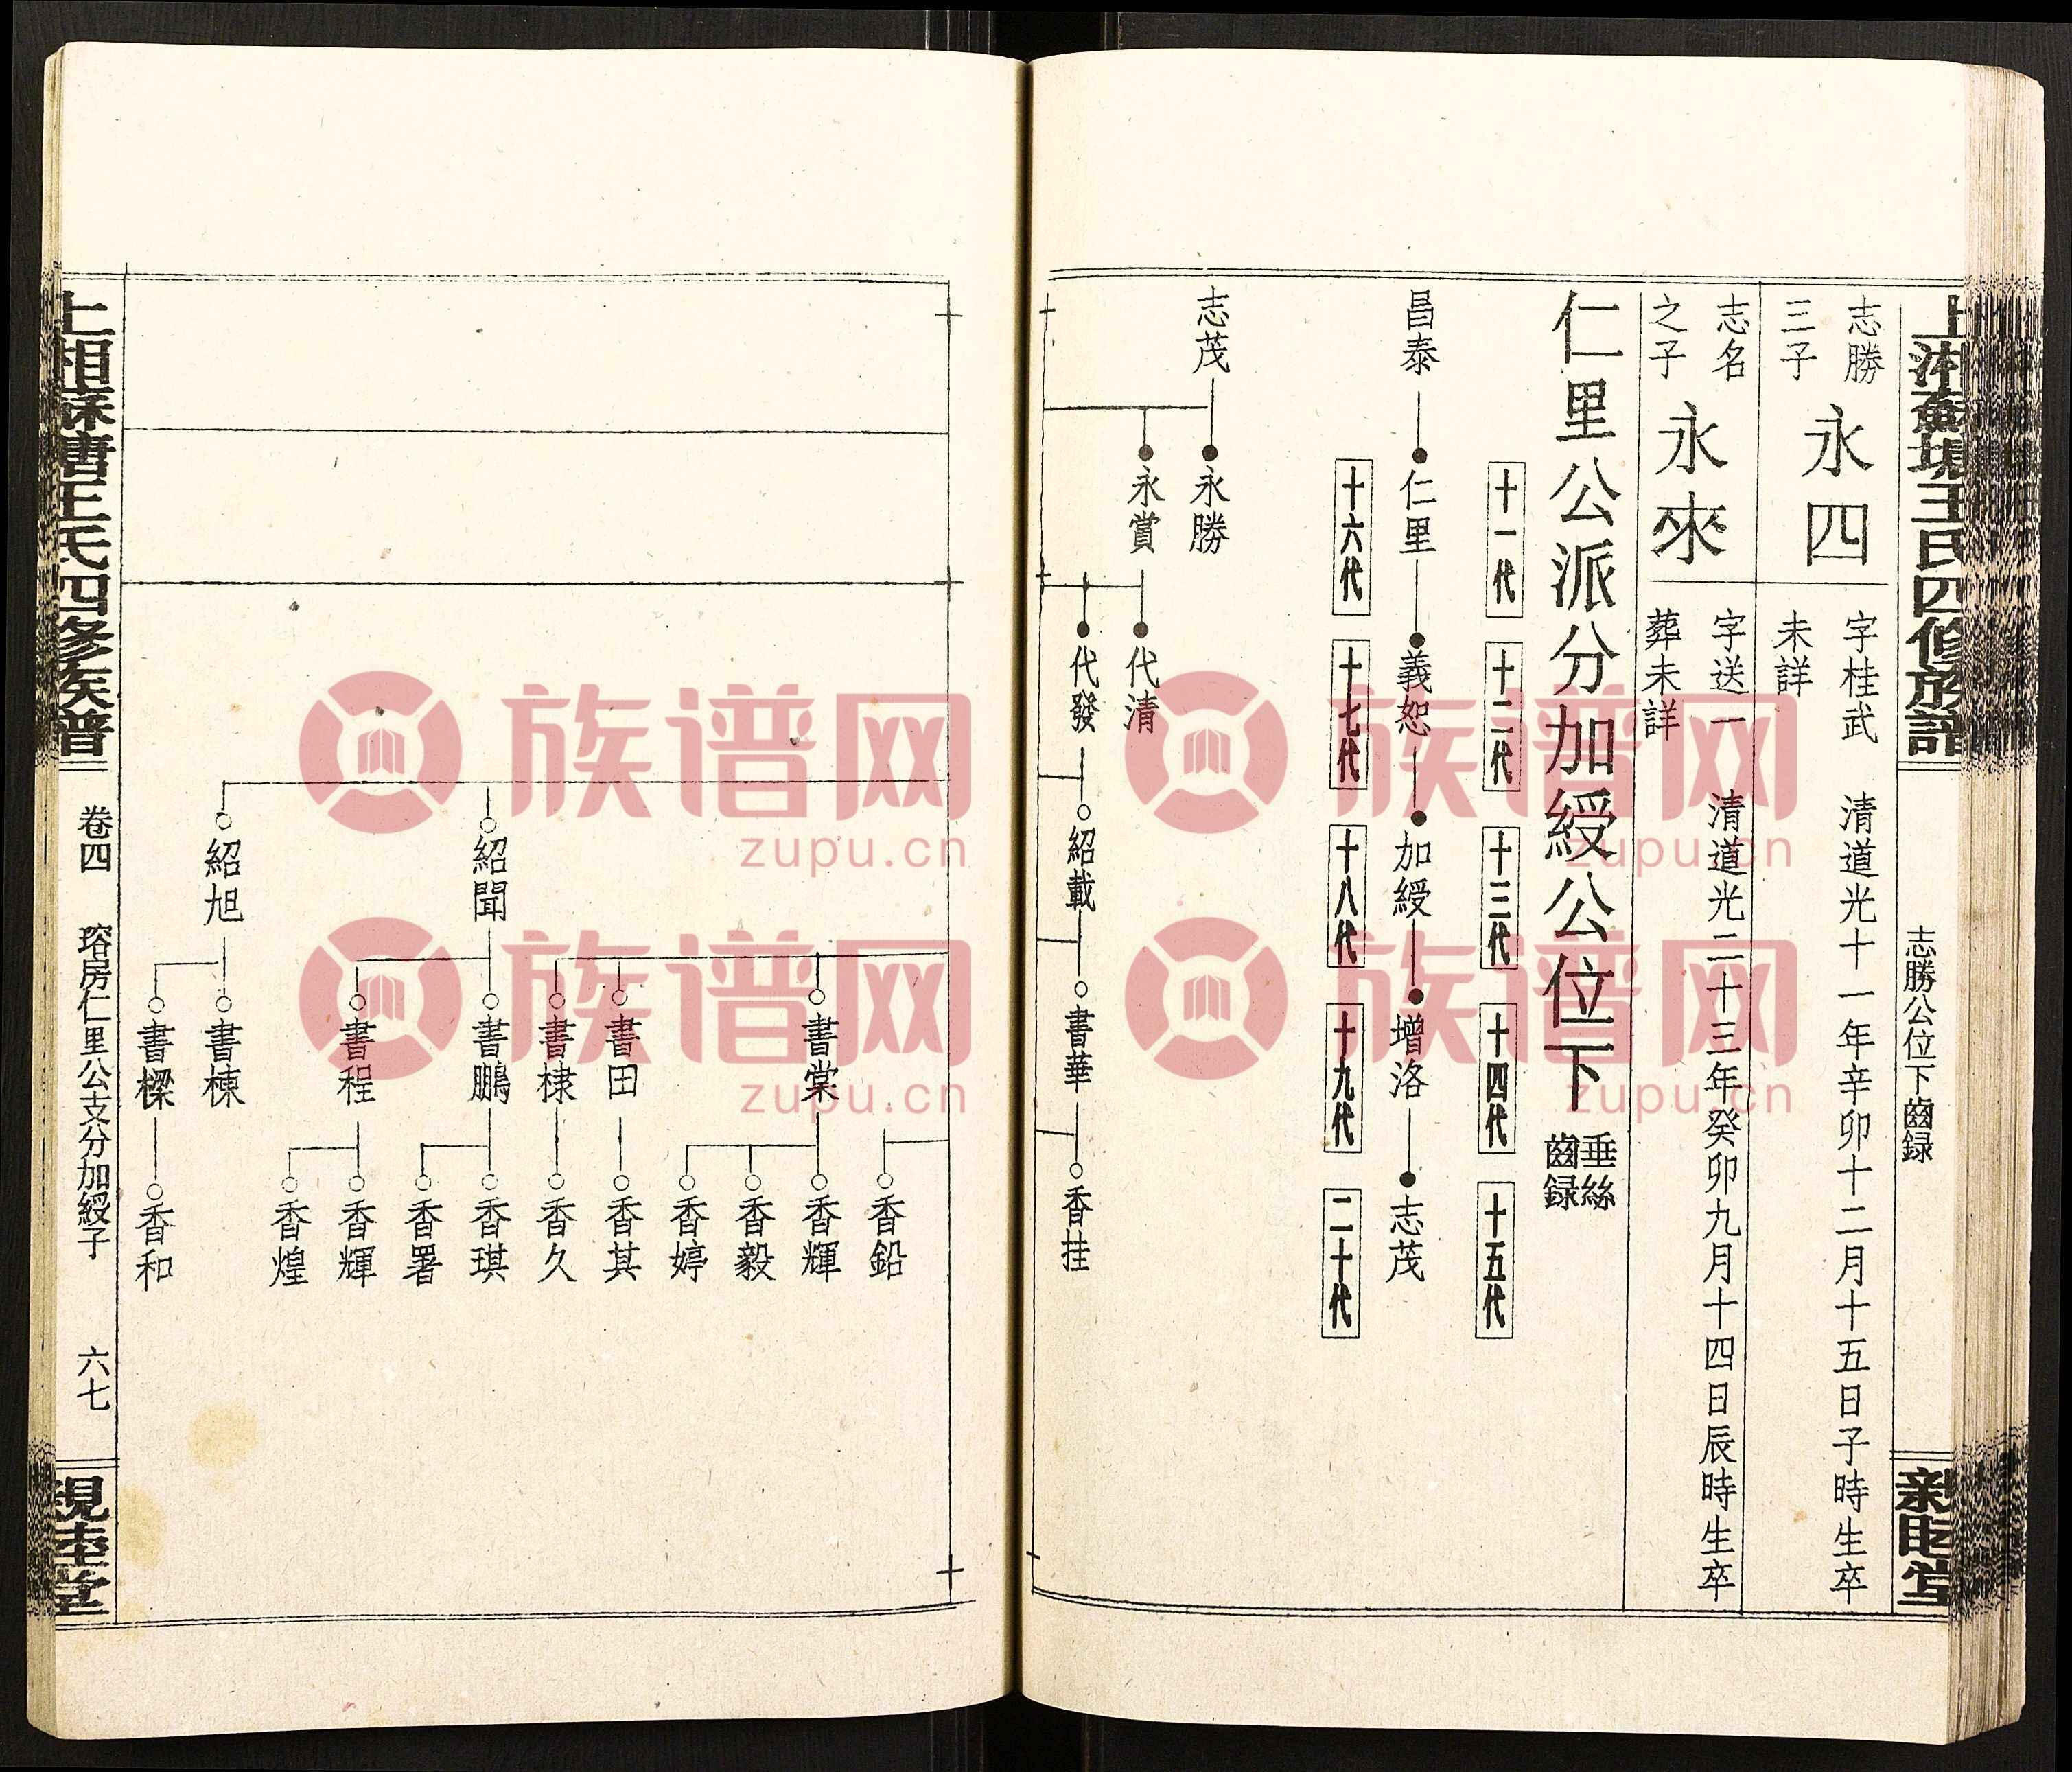 上湘蘇塘王氏四修族譜
志勝公位下齒録
親睦堂
志勝
三子
永四
字桂武 清道光十一年辛卯十二月十五日子時生卒
未詳
志名
之子
永來
字送一 清道光二十三年癸卯九月十四日辰時生卒
葬未詳
仁里公派分加綬公位下
垂絲
齒録
十一代 十二代 十三代 十四代 十五代
昌泰 仁里 義恕 加綬 增洛 志茂
十六代 十七代 十八代 十九代 二十代
志茂 永勝
永賞 代清
代發 紹載 書華 香挂
香鉛
書棠 香輝
香毅
香婷
書田 香其
書棣 香久
紹聞 書鵬 香琪
香署
書程 香輝
香煌
紹旭 書棟
書樑 香和
上湘蘇塘王氏四修族譜
卷四 瑢房仁里公支分加綬子 六七
親睦堂
族谱网
zupu.cn
族谱网
zupu.cn
族谱网
zupu.cn
族谱网
zupu.cn